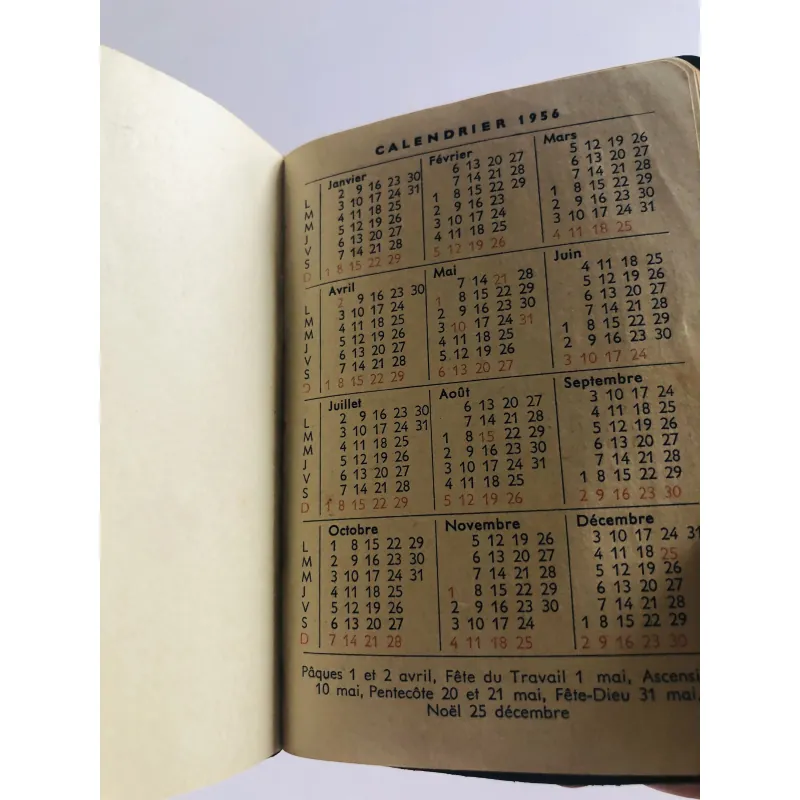 CALENDRIER 1956
Janvier
L 2 9 16 23 30
M 3 10 17 24 31
M 4 11 18 25
J 5 12 19 26
V 6 13 20 27
S 7 14 21 28
D 1 8 15 22 29
Février
6 13 20 27
7 14 21 28
1 8 15 22 29
2 9 16 23
3 10 17 24
4 11 18 25
5 12 19 26
Mars
5 12 19 26
6 13 20 27
7 14 21 28
1 8 15 22 29
2 9 16 23 30
3 10 17 24 31
4 11 18 25
Avril
L 2 9 16 23 30
M 3 10 17 24
M 4 11 18 25
J 5 12 19 26
V 6 13 20 27
S 7 14 21 28
D 1 8 15 22 29
Mai
7 14 21 28
1 8 15 22 29
2 9 16 23 30
3 10 17 24 31
4 11 18 25
5 12 19 26
6 13 20 27
Juin
4 11 18 25
5 12 19 26
6 13 20 27
7 14 21 28
1 8 15 22 29
2 9 16 23 30
3 10 17 24
Juillet
L 2 9 16 23 30
M 3 10 17 24 31
M 4 11 18 25
J 5 12 19 26
V 6 13 20 27
S 7 14 21 28
D 1 8 15 22 29
Août
6 13 20 27
7 14 21 28
1 8 15 22 29
2 9 16 23 30
3 10 17 24 31
4 11 18 25
5 12 19 26
Septembre
3 10 17 24
4 11 18 25
5 12 19 26
6 13 20 27
7 14 21 28
1 8 15 22 29
2 9 16 23 30
Octobre
L 1 8 15 22 29
M 2 9 16 23 30
M 3 10 17 24 31
J 4 11 18 25
V 5 12 19 26
S 6 13 20 27
D 7 14 21 28
Novembre
5 12 19 26
6 13 20 27
7 14 21 28
1 8 15 22 29
2 9 16 23 30
3 10 17 24
4 11 18 25
Décembre
3 10 17 24 31
4 11 18 25
5 12 19 26
6 13 20 27
7 14 21 28
1 8 15 22 29
2 9 16 23 30
Pâques 1 et 2 avril, Fête du Travail 1 mai, Ascensi
10 mai, Pentecôte 20 et 21 mai, Fête-Dieu 31 mai,
Noël 25 décembre